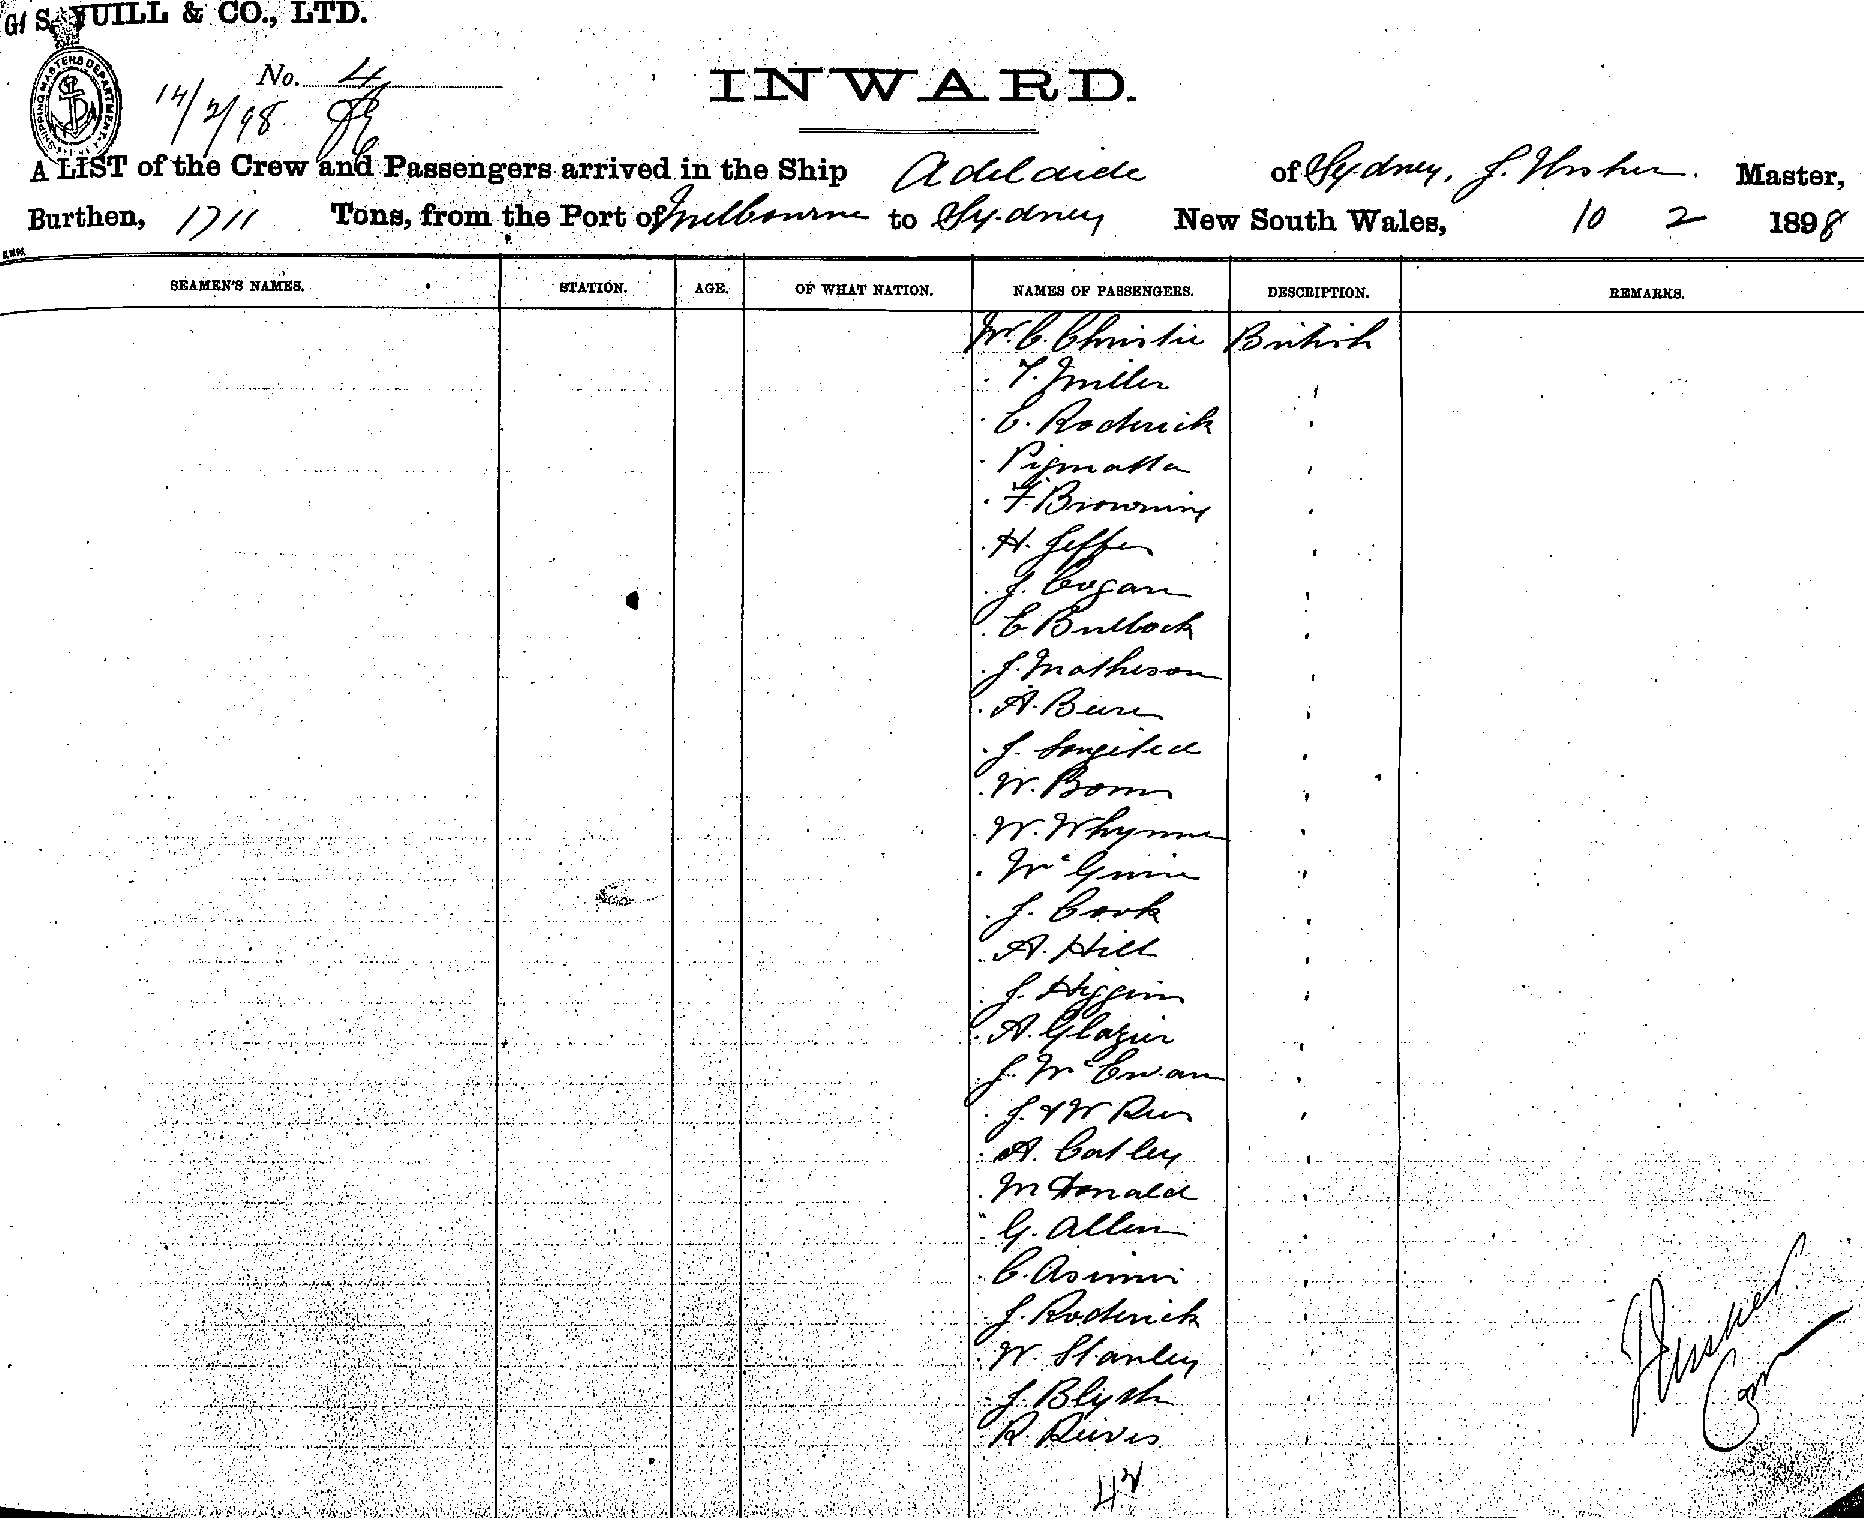 G. S. YUILL & CO., LTD.
SHIPPING MASTERS DEPARTMENT
No. 4
14/2/98
INWARD.
A LIST of the Crew and Passengers arrived in the Ship Adelaide of Sydney, J. Master,
Burthen, 1711 Tons, from the Port of Melbourne to Sydney New South Wales, 10 2 1898
SEAMEN'S NAMES. STATION. AGE. OF WHAT NATION. NAMES OF PASSENGERS. DESCRIPTION. REMARKS.
Mr. C. Christie British
T. Miller
C. Roderick
F. Browning
H.
J. Cogan
C Bullock
J. Matheson
A.
J.
W.
W. Whynne
J. Cook
A. Hill
J. Higgins
A. Glazier
J. McEwan
J. & W Rees
A. Catley
McDonald
G. Allen
C.
J. Roderick
W. Stanley
J. Blyth
R Reeves
42